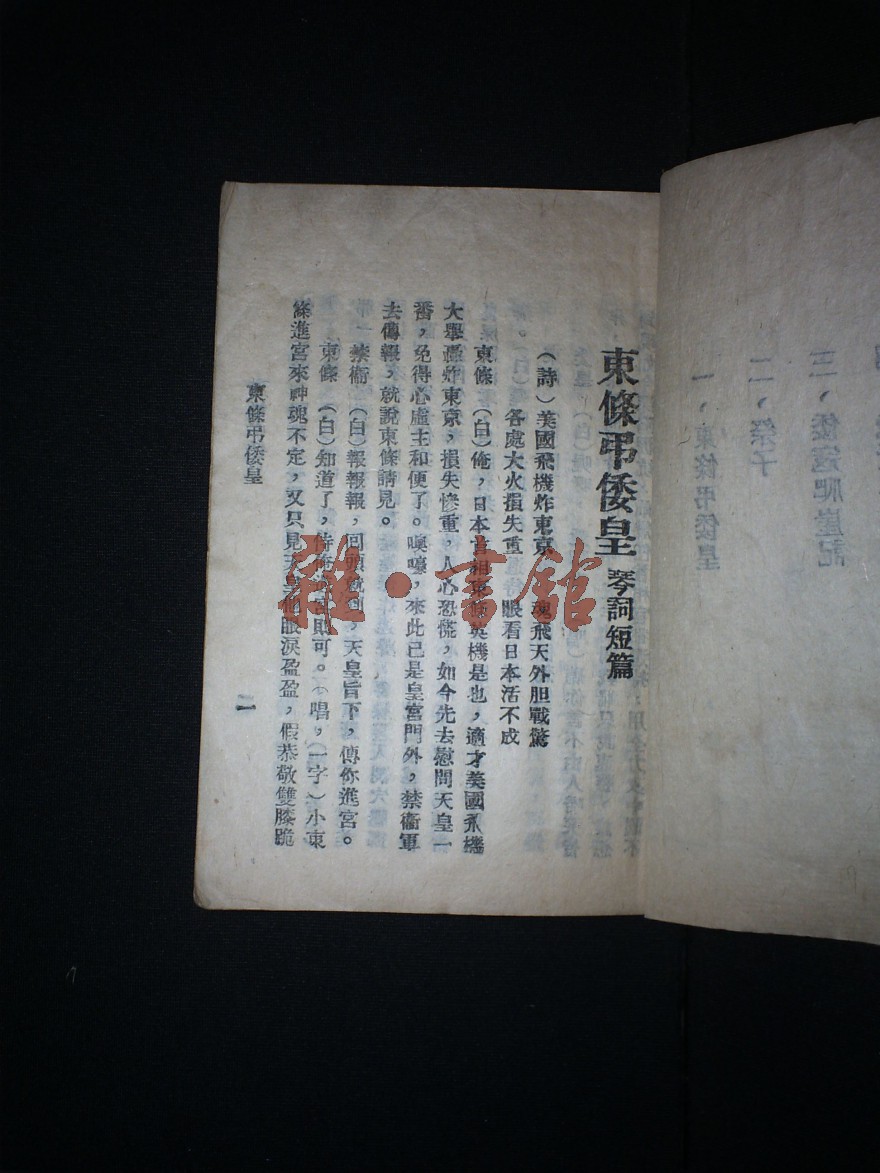 三，倭寇爬崖記
二，祭子
一，東條弔倭皇
東條弔倭皇 琴詞短篇
（詩）美國飛機炸東京 魂飛天外胆戰驚
各處大火損失重 眼看日本活不成
東條 （白）俺，日本首相東條英機是也，適才美國飛機
大舉轟炸東京，損失慘重，人心恐慌，如今先去慰問天皇一
番，免得心虛主和便了。噢嚎，來此已是皇宮門外，禁衞軍
去傳報，就說東條請見。
禁衞 （白）報報報，回頭就到，天皇旨下，傳你進宮。
東條 （白）知道了，待俺進宮則可。（唱，一字）小東
條進宮來神魂不定，又只見天皇他眼淚盈盈，假恭敬雙膝跪
東條弔倭皇
二
雜·書館